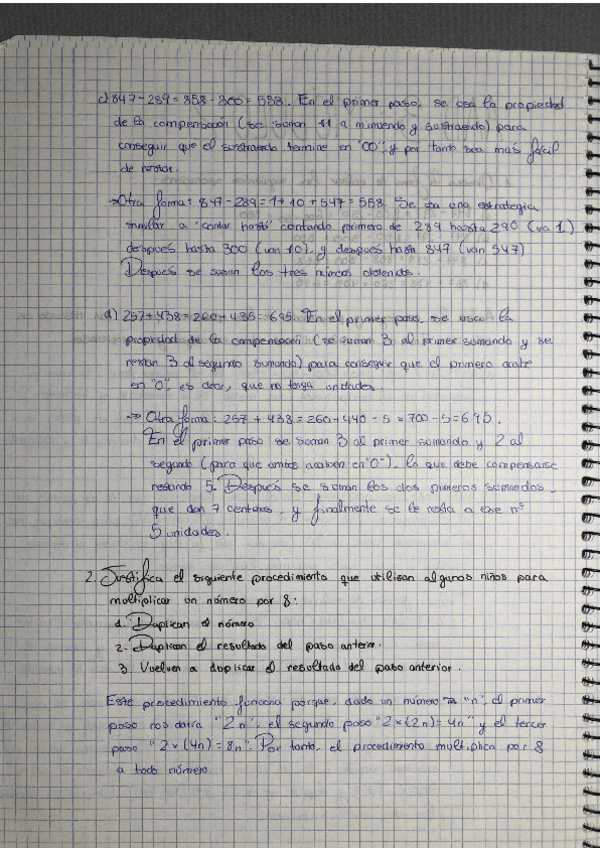 c) 847-289 = 858-300 = 558. En el primer paso, se usa la propiedad
de la compensación (se suman 11 a minuendo y sustraendo) para
conseguir que el sustraendo termine en "00", y por tanto sea más fácil
de restar.
→ Otra forma: 847-289 = 1+10+547 = 558 Se usa una estrategia
similar a "contar hasta" contando primero de 289 hasta 290 (va 1)
después hasta 300 (van 10) y después hasta 847 (van 547)
Después se suman los tres números obtenidos.
d) 257+438 = 260+435 = 695. En el primer paso, se usa la
propiedad de la compensación (se suman 3 al primer sumando y se
restan 3 al segundo sumando) para conseguir que el primero acabe
en "0", es decir, que no tenga unidades.
→ Otra forma: 257 + 438 = 260+440 - 5 = 700-5 = 695.
En el primer paso se suman 3 al primer sumando y 2 al
segundo (para que ambos acaben en "0"), lo que debe compensarse
restando 5. Después se suman los dos primeros sumandos,
que dan 7 centenas, y finalmente se le resta a ese nº
5 unidades.
2. Justifica el siguiente procedimiento que utilizan algunos niños para
multiplicar un número por 8:
1. Duplican el número
2. Duplican el resultado del paso anterior.
3 Vuelven a duplicar el resultado del paso anterior.
Este procedimiento funciona porque, dado un número "n", el primer
paso nos daría "2n", el segundo paso "2×(2n) = 4n" y el tercer
paso "2×(4n) = 8n". Por tanto, el procedimiento multiplica por 8
a todo número